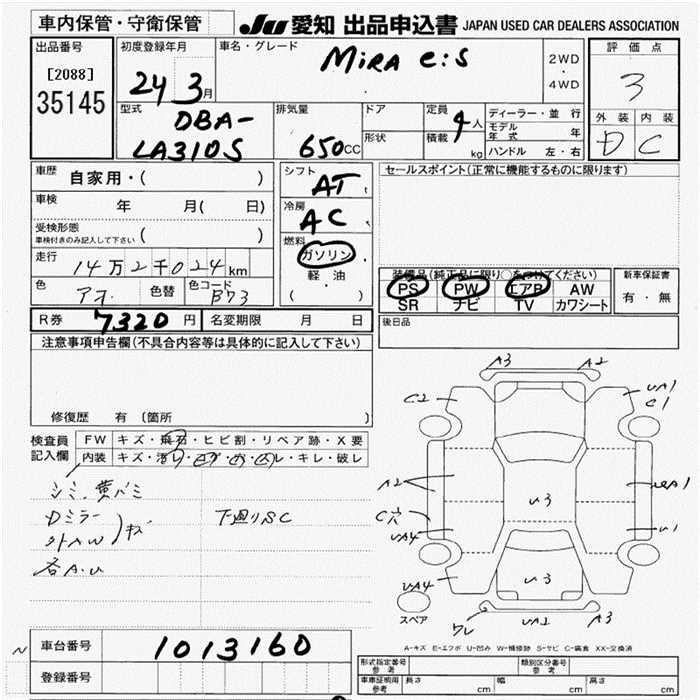 車内保管・守衛保管
JU 愛知 出品申込書 JAPAN USED CAR DEALERS ASSOCIATION
出品番号
[2088]
35145
初度登録年月
24 3月
車名・グレード
MiRA e:S
2WD
・
4WD
評価点
3
外装 内装
D C
型式
DBA-
LA310S
排気量
650CC
ドア
形状
定員
4人
積載
kg
ディーラー・並行
モデル年式 年
ハンドル 左・右
車歴
自家用・( )
車検
年 月( 日)
受検形態
車検付きのみ記入して下さい ( )
走行
14万2千024km
色
アオ
色替
色コード
B73
シフト
AT
冷房
AC
燃料
ガソリン
軽・油
( )
セールスポイント(正常に機能するものに限ります)
装備品(純正品に限り○をつけてください)
PS PW エアB AW
SR ナビ TV カワシート
新車保証書
有・無
後日品
R券 7320円
名変期限 月 日
注意事項申告欄(不具合内容等は具体的に記入して下さい)
修復歴 有 〔箇所 〕
検査員記入欄
FW キズ・飛石・ヒビ割・リペア跡・X要
内装 キズ・汚れ・コゲ・穴・スレ・キレ・破レ
シミ、黄バミ
Dミラー
外AW
キズ
各A.U
下廻りSC
A3 A2
C2
UA1
C1
A2
U3
UA1
C穴
UA4
U1
U3
UA4
ワレ UA2 A3
スペア
A-キズ E-エクボ U-凹み W-補修跡 S-サビ C-腐食 XX-交換済
車台番号 1013160
登録番号
形式指定番号
参考
類別区分番号
参考
車庫証明用
参考
長さ cm 幅 cm 高さ cm